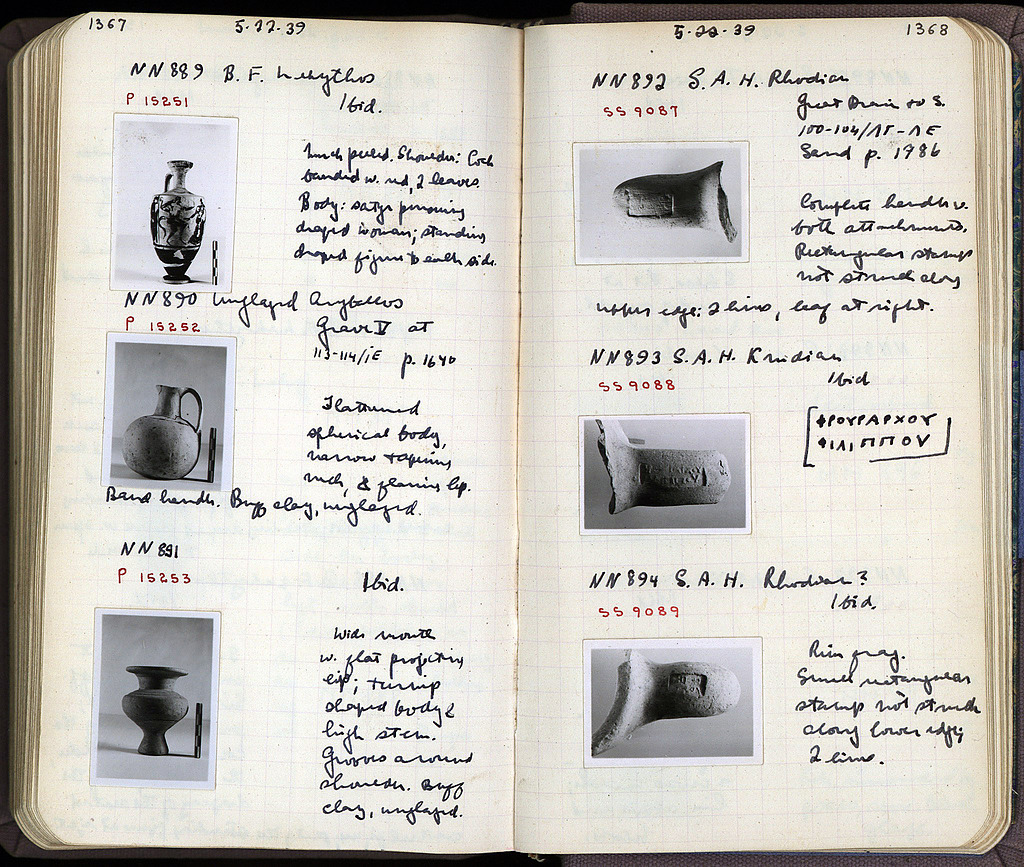 1367
5-22-39
NN889 B. F. Lekythos
P 15251
Ibid.
Much peeled. Shoulder: Cock
banded w. red, 2 leaves.
Body: satyr pursuing
draped woman; standing
draped figure to each side.
NN890 Unglazed Aryballos
P 15252
Grave V at
113-114/ΙΕ p. 1640
Flattened
spherical body,
narrow tapering
neck, & flaring lip.
Band handle. Buff clay, unglazed.
NN891
P 15253
Ibid.
Wide mouth
w. flat projecting
lip; turnip
shaped body &
high stem.
Grooves around
shoulder. Buff
clay, unglazed.
1368
5-22-39
NN892 S. A. H. Rhodian
SS 9087
Great Drain to S.
100-104/ΛΓ-ΛΕ
Sand p. 1786
Complete handle w.
both attachments.
Rectangular stamp
not struck along
upper edge: 2 lines, leaf at right.
NN893 S. A. H. Knidian
SS 9088
Ibid
ΦΡΟΥΡΑΡΧΟΥ
ΦΙΛΙΠΠΟΥ
NN894 S. A. H. Rhodian?
SS 9089
Ibid.
Rim frag.
Small rectangular
stamp not struck
along lower edge;
2 lines.